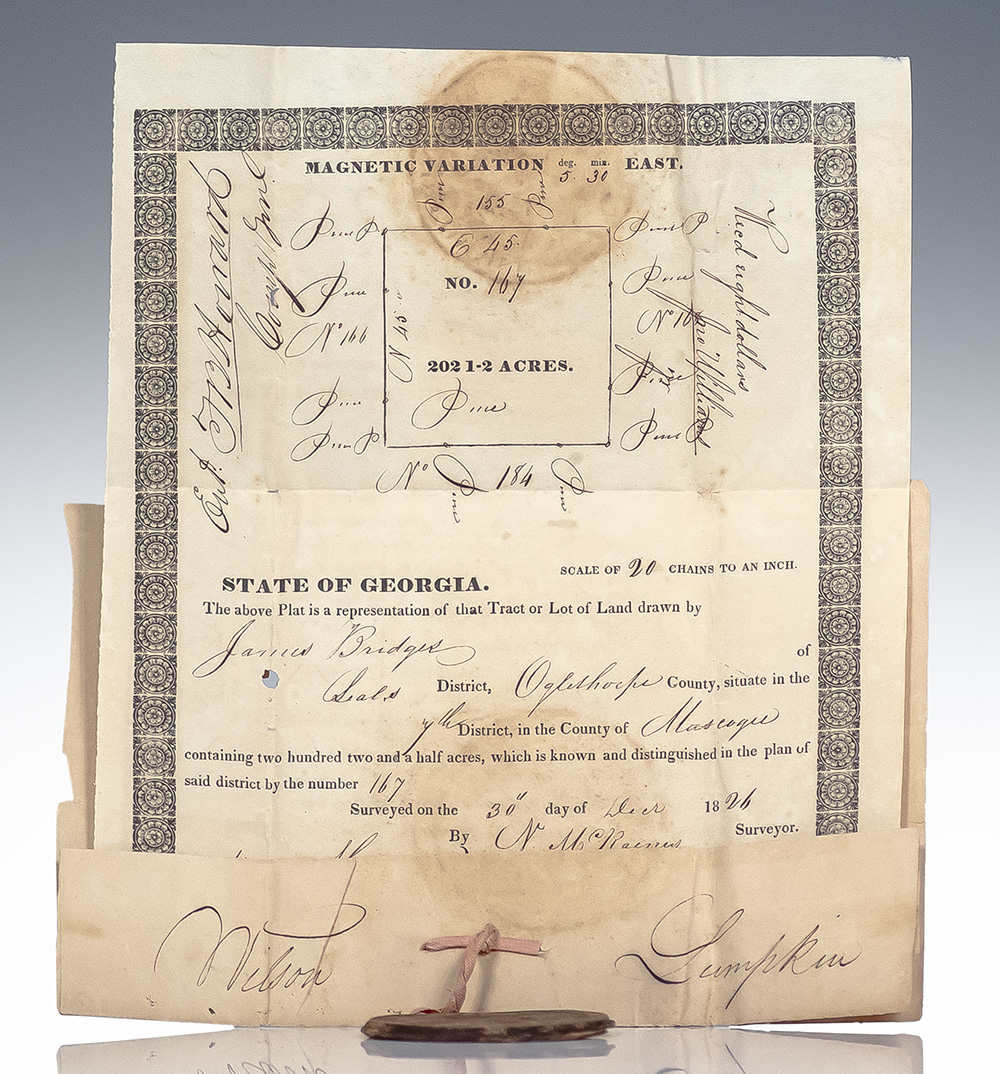 MAGNETIC VARIATION deg. 5 min. 30 EAST.
Pine 155 Pine
Pine P
Pine P
E 45.
Pine
NO. 167
Pine
No 166
N 45
No 16
202 1-2 ACRES.
Pine
Pine
Pine
Pine P
Pine P
No Pine 184 Pine
Recd eight dollars
Jno Williams
SCALE OF 20 CHAINS TO AN INCH.
STATE OF GEORGIA.
The above Plat is a representation of that Tract or Lot of Land drawn by
James Bridges
of
Seals District, Oglethorpe County, situate in the
7th District, in the County of Muscogee
containing two hundred two and a half acres, which is known and distinguished in the plan of
said district by the number 167
Surveyed on the 30" day of Decr 1826
By N. Surveyor.
Wilson Lumpkin